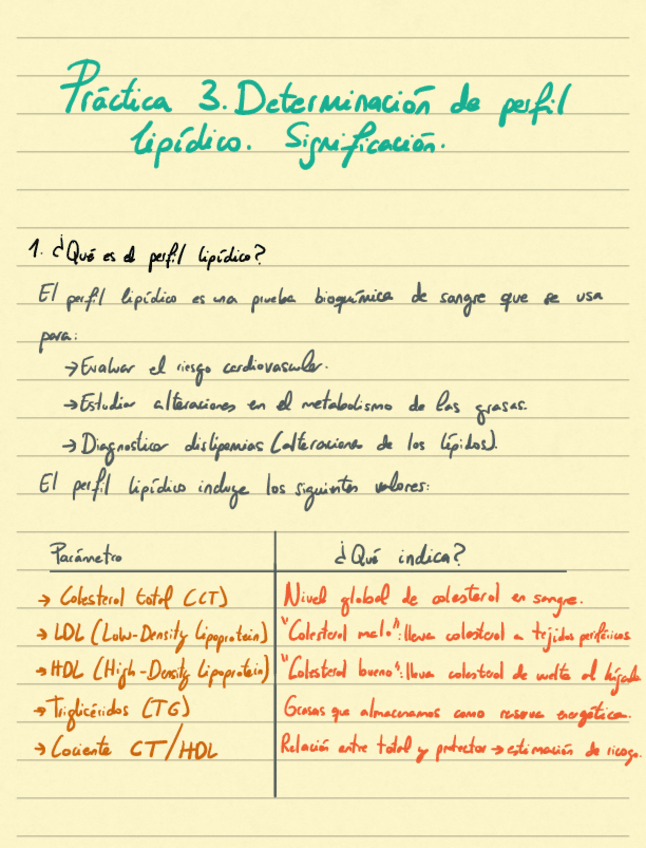 Práctica 3. Determinación de perfil
lipídico. Significación.
1. ¿Qué es el perfil lipídico?
El perfil lipídico es una prueba bioquímica de sangre que se usa
para:
→ Evaluar el riesgo cardiovascular.
→ Estudiar alteraciones en el metabolismo de las grasas.
→ Diagnosticar dislipemias (alteraciones de los lípidos).
El perfil lipídico incluye los siguientes valores:
Parámetro ¿Qué indica?
→ Colesterol total (CT) Nivel global de colesterol en sangre.
→ LDL (Low-Density Lipoprotein) "Colesterol malo": lleva colesterol a tejidos periféricos
→ HDL (High-Density Lipoprotein) "Colesterol bueno": lleva colesterol de vuelta al hígado
→ Triglicéridos (TG) Grasas que almacenamos como reserva energética.
→ Cociente CT/HDL Relación entre total y protector → estimación de riesgo.